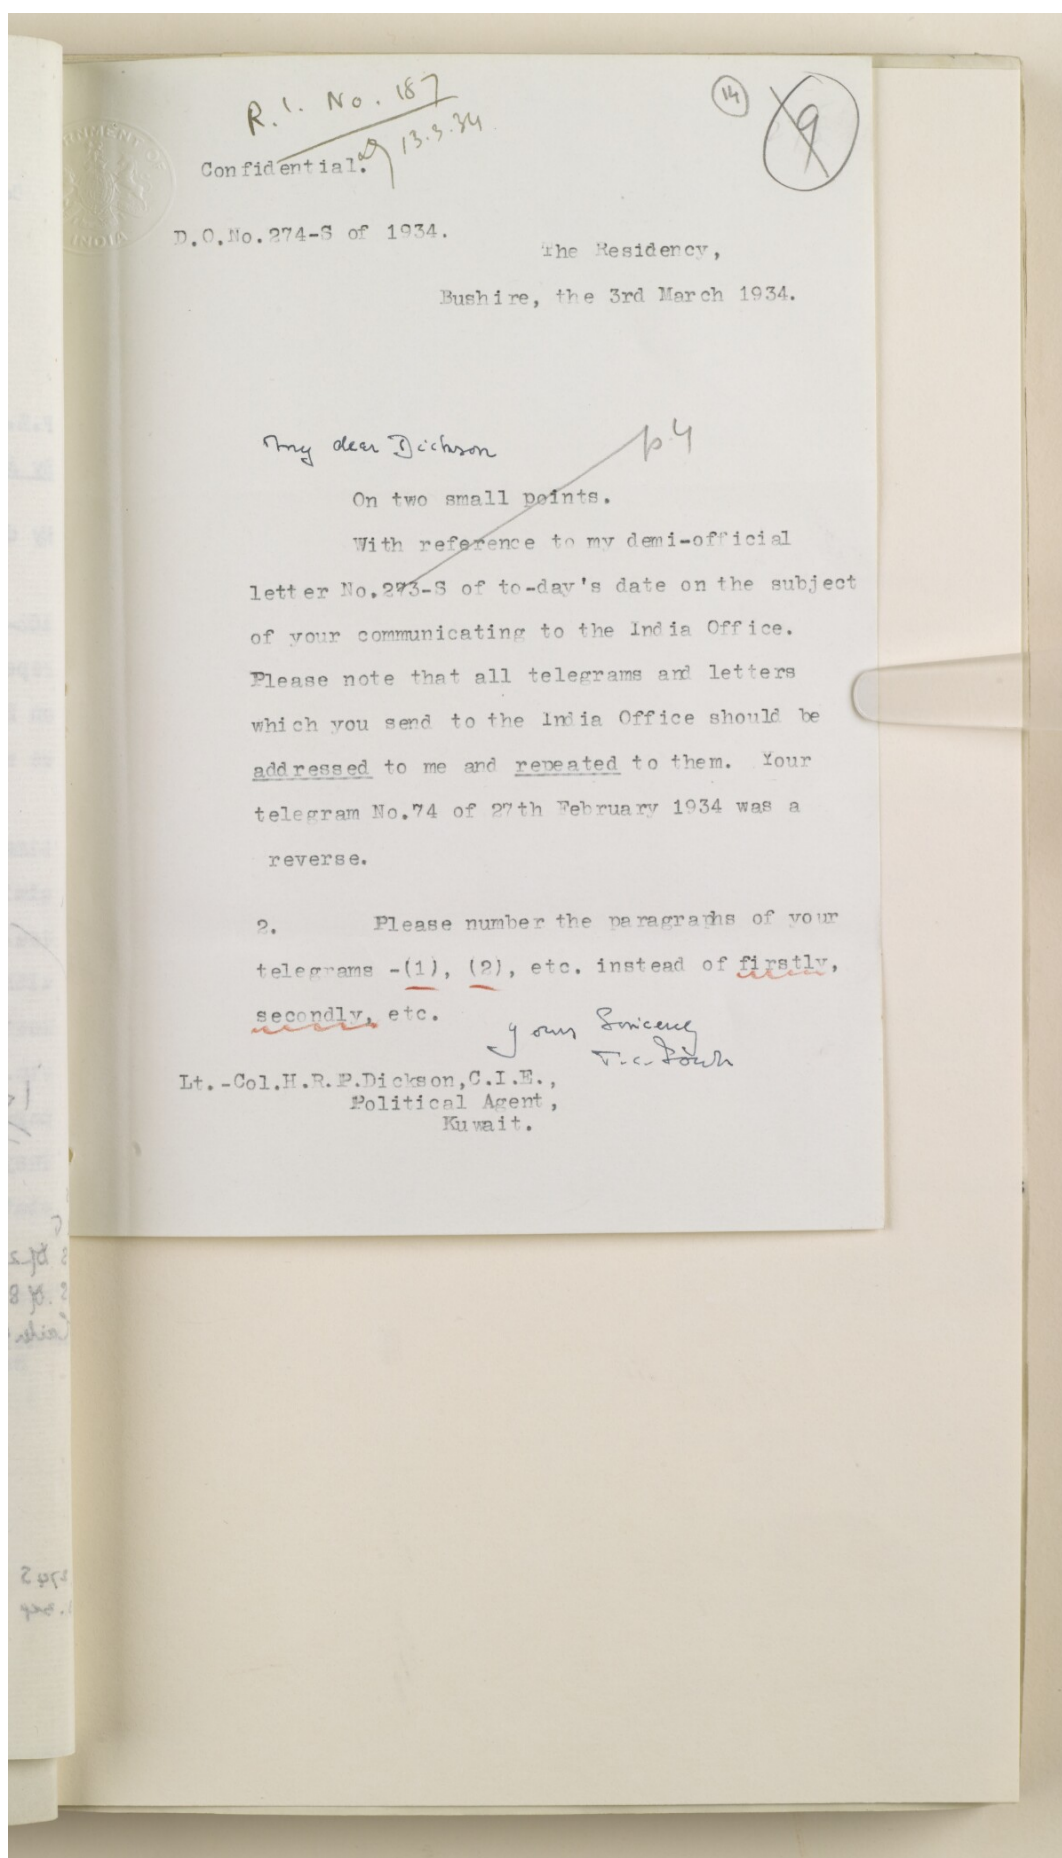 R.I. No. 187
13.3.34
14
9
GOVERNMENT OF
INDIA
Confidential.
D.O.No.274-S of 1934.
The Residency,
Bushire, the 3rd March 1934.
My dear Dickson
p 4
On two small points.
With reference to my demi-official
letter No.273-S of to-day's date on the subject
of your communicating to the India Office.
Please note that all telegrams and letters
which you send to the India Office should be
addressed to me and repeated to them. Your
telegram No.74 of 27th February 1934 was a
reverse.
2. Please number the paragraphs of your
telegrams -(1), (2), etc. instead of firstly,
secondly, etc.
Yours Sincerely
T.C. Fowle
Lt.-Col.H.R.P.Dickson,C.I.E.,
Political Agent,
Kuwait.